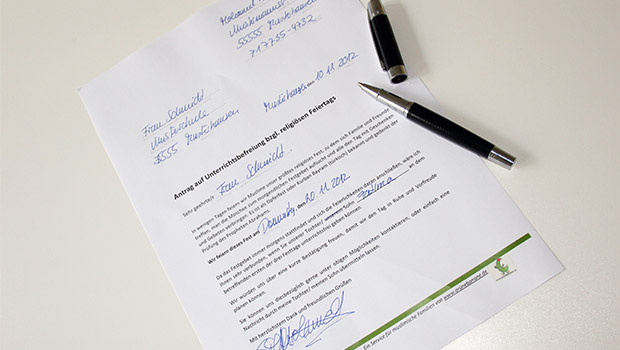 Mustermann
55555 Musterhausen
717735-9732
Frau Schmidt
Musterschule
55555 Musterhausen
Musterhausen, den 10.11.2012
Antrag auf Unterrichtsbefreiung bzgl. religiösen Feiertags
Sehr geehrte/r Frau Schmidt,
in wenigen Tagen feiern wir Muslime unser größtes religiöses Fest, zu dem sich Familie und Freunde
treffen, man die Moschee zum morgendlichen Festgebet aufsucht und alle den Tag mit Geschenken
und Gebeten verbringen. Es ist als Opferfest oder Kurban Bayramı (türkisch) bekannt und gedenkt der
Prüfung des Propheten Abraham.
Wir feiern dieses Fest am Donnerstag, den 20.11.2012
Da das Festgebet immer morgens stattfindet und sich die Feierlichkeiten daran anschließen, wäre ich
Ihnen sehr verbunden, wenn Sie unserer Tochter/ unserem Sohn Fatima an dem
betreffenden ersten der drei Festtage unterrichtsfrei geben können.
Wir würden uns über eine kurze Bestätigung freuen, damit wir den Tag in Ruhe und Vorfreude
planen können.
Sie können uns diesbezüglich gerne unter obigen Möglichkeiten kontaktieren, oder einfach eine
Nachricht durch meine Tochter/ meinen Sohn übermitteln lassen.
Mit herzlichstem Dank und freundlichen Grüßen
Ein Service für muslimische Familien von www.grünebanane.de